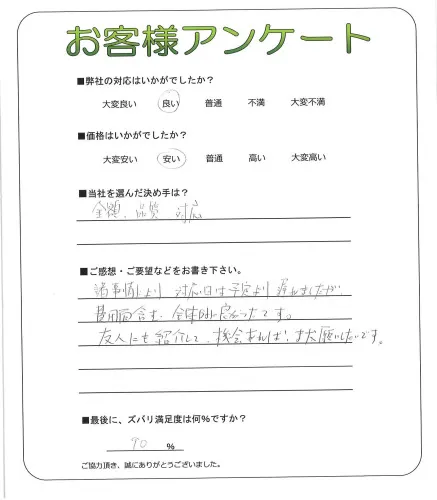 お客様アンケート
■弊社の対応はいかがでしたか?
大変良い 良い 普通 不満 大変不満
■価格はいかがでしたか?
大変安い 安い 普通 高い 大変高い
■当社を選んだ決め手は?
金額、品質 対応
■ご感想・ご要望などをお書き下さい。
諸事情により 対応日は予定より 遅れましたが、
費用面含め 全体的に良かったです。
友人にも紹介して、機会あれば、また願いしたいです。
■最後に、ズバリ満足度は何%ですか?
90 %
ご協力頂き、誠にありがとうございました。